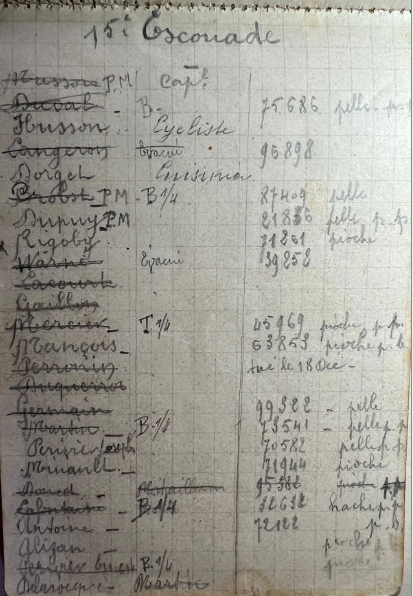 15e Escouade
Husson P.M Capl
Duval - B - 75686 pelle - p.
Husson Cycliste
Langeron Evacué 96898
Dorget Cuisinier
Probst P.M - B 1/4 87409 pelle
Dupuy P.M 21836 pelle p.p.
Rigoby 31201 pioche
Warné Evacué 39252
Lacourt
Gaillon
Mercier - T 1/4 45969 pioche p.p.
Mançois - 63853 pioche p.p.
Perronin tué le 18 Dec -
Duquerroi
Germain 99322 - pelle
Martin - B. 1/4 73541 - pelle p.p
Perisier Joseph 70582 pelle p.p
Minault - 71944 pioche
95382 pioche p.p
B 1/4 32632 hache p.p
Antoine - 72122 p.p
Alizan - pioche p
B 1/4
Delarocque - Martin